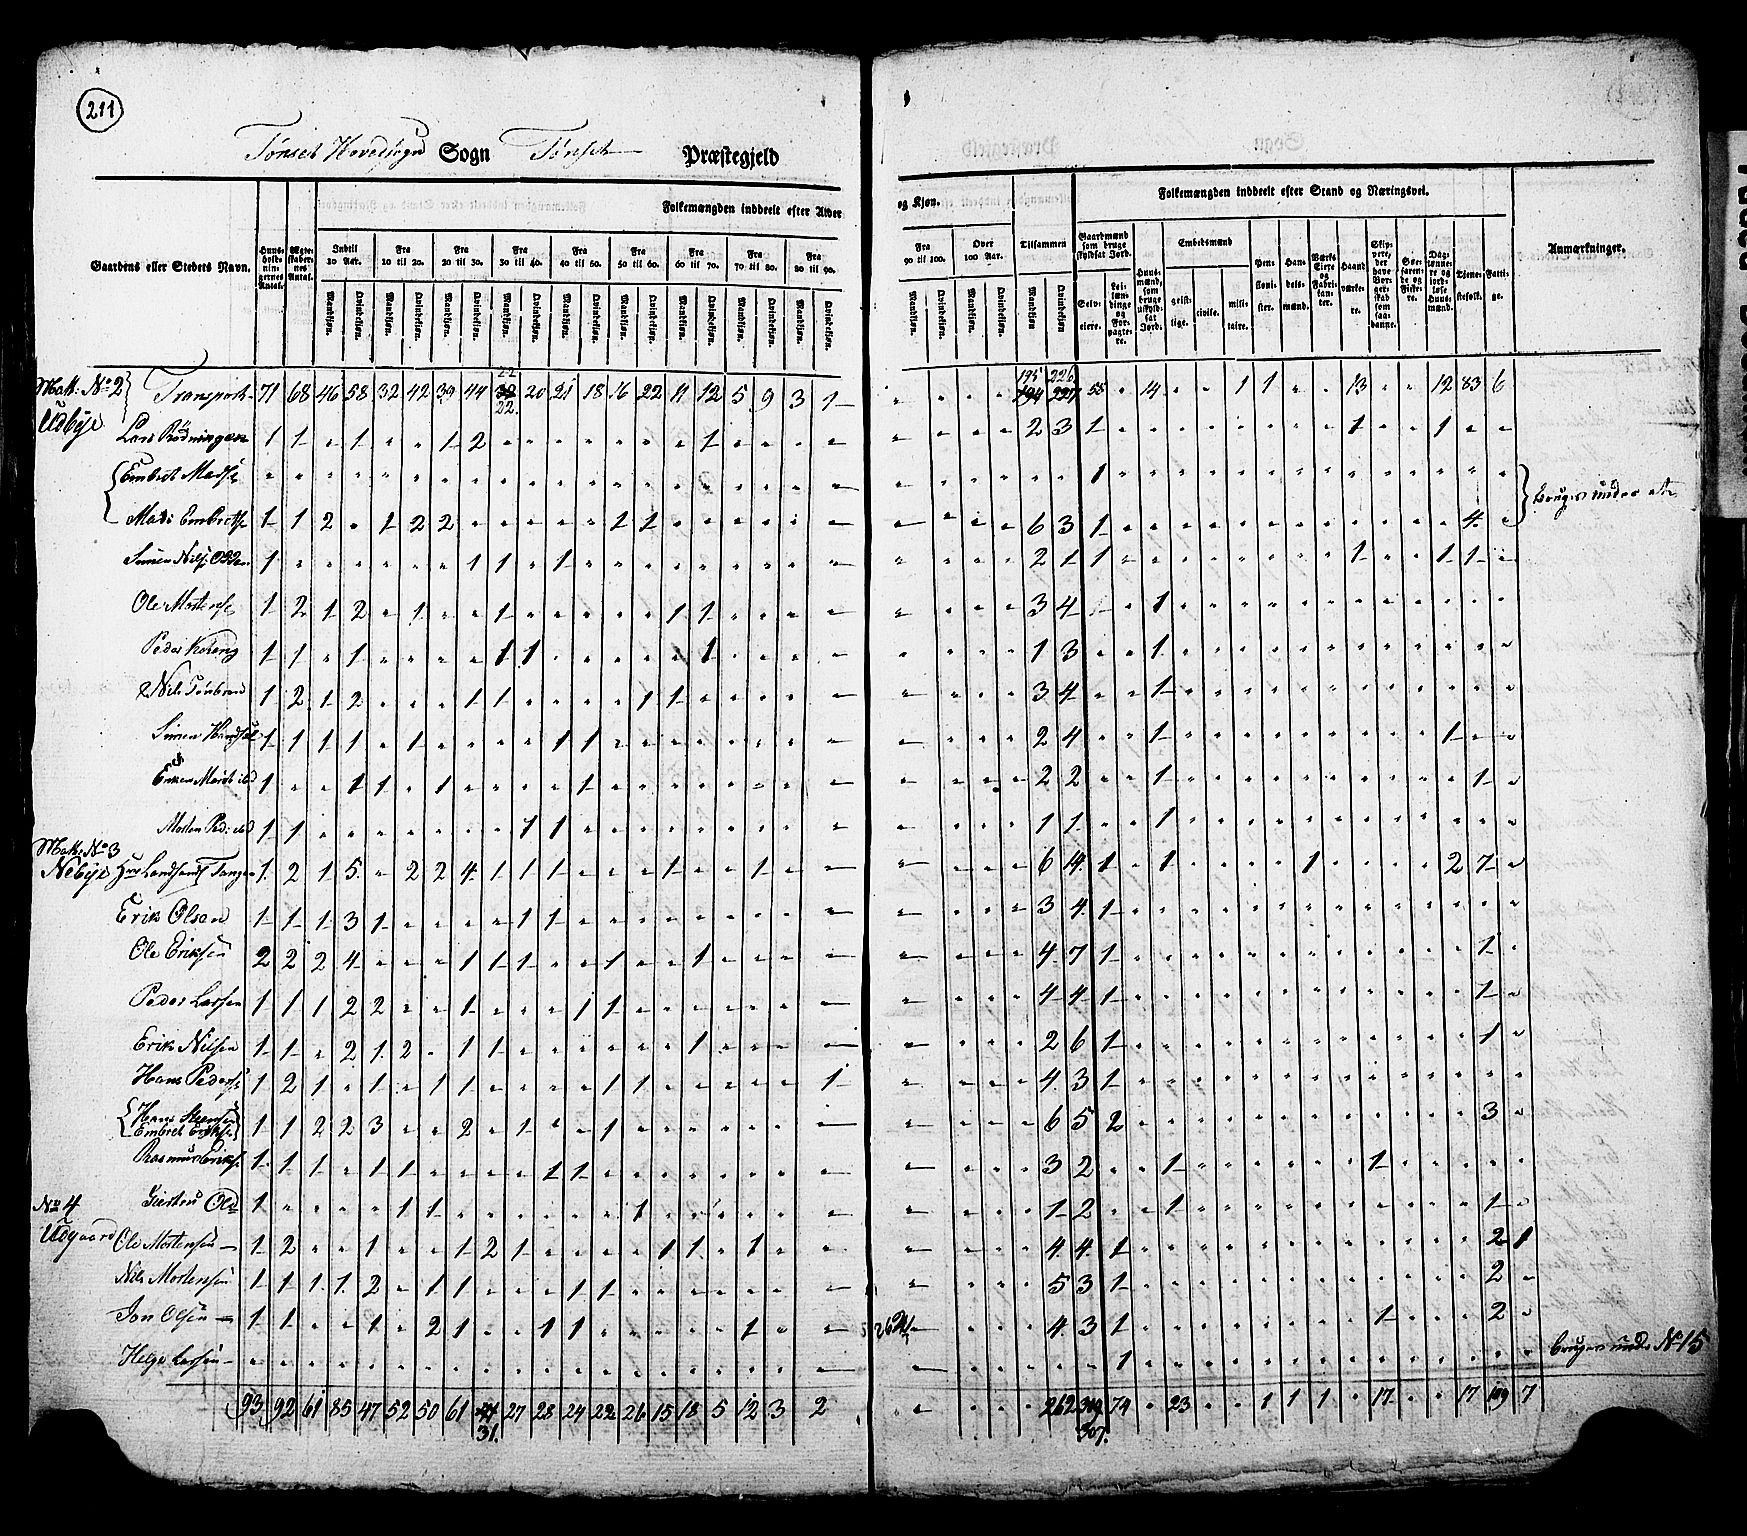 211
Tønset Hovedsogn Sogn Tønset Præstegjeld
Gaardens eller Stedets Navn.
Huusholdningernes Antal.
Ægteskabernes Antal.
Folkemængden inddeelt efter Alder
og Kjøn.
Indtil 10 Aar.
Fra 10 til 20.
Fra 20 til 30.
Fra 30 til 40.
Fra 40 til 50.
Fra 50 til 60.
Fra 60 til 70.
Fra 70 til 80.
Fra 80 til 90.
Fra 90 til 100.
Over 100 Aar.
Tilsammen
Mandkjøn. Qvindekjøn.
Folkemængden inddeelt efter Stand og Næringsvei.
Gaardmænd som bruge skyldsat Jord.
Selveiere.
Leilændinge og Forpagtere.
Huusmænd, som bruge uskyldsat Jord.
Embedsmænd
geistlige.
civile.
militaire.
Pensionister.
Handelsmænd.
Værkseiere og Fabrikanter.
Haandværkere.
Skippere, der have Borgerskab som saadanne.
Søefarende og Fiskere.
Daglønnere og jordløse Huusmænd.
Tjenestefolk.
Fattige.
Anmærkninger.
Matr. No 2 Transport 71 68 46 58 32 42 39 44 22 20 21 18 16 22 11 12 5 9 3 1 195 226 55 14 1 1 13 12 83 6
Udbye
Lars Rødningen 1 1 1 1 2 1 2 3 1 1 1
Embret Madss 1
Mads Embretss 1 1 2 1 2 2 1 1 6 3 1 4 bruges under et
Simen Nils 1 1 1 1 2 1 1 1 1 1
Ole Mortens 1 2 1 2 1 1 1 1 3 4 1
Peder 1 1 1 1 1 1 1 3 1
Nils 1 2 1 2 1 1 1 1 3 4 1
Simen 1 1 1 1 1 1 1 2 4 1 1
1 1 1 1 1 2 2 1 1
Morten Ped: 1 1 1 1 1 1 1
Matr. No 3
Nebye Tangen 1 2 1 5 2 2 4 1 1 1 1 1 6 14 1 1 1 2 7
Erik Olsen 1 1 1 3 1 1 1 3 4 1
Ole Eriksen 2 2 2 4 1 1 1 1 1 4 7 1 1
Peder Larsen 1 1 1 2 2 1 1 1 4 4 1 1
Erik Nilsen 1 1 2 1 2 1 1 1 2 6 1 1
Hans Peders 1 2 1 1 1 1 1 1 1 4 3 1
Hans Steensen
Embret Eriks 1 1 2 2 3 2 1 1 6 5 2 3
Rasmus Eriks 1 1 1 1 1 1 1 3 2 1 1
No 4 Ols 1 1 1 1 1 2 1 1
Udgaard Ole Mortensen 1 2 1 1 2 1 1 1 1 4 4 1 2 1
Nils Mortensen 1 1 1 1 2 1 1 1 1 5 3 1 2
Jon Olsen 1 1 1 2 1 1 1 1 4 3 1 1 2
Helge Larsen 1 bruges under No 15
93 92 61 85 47 52 50 61 31 27 28 24 22 26 15 18 5 12 3 2 262 307 74 23 1 1 1 17 17 109 7